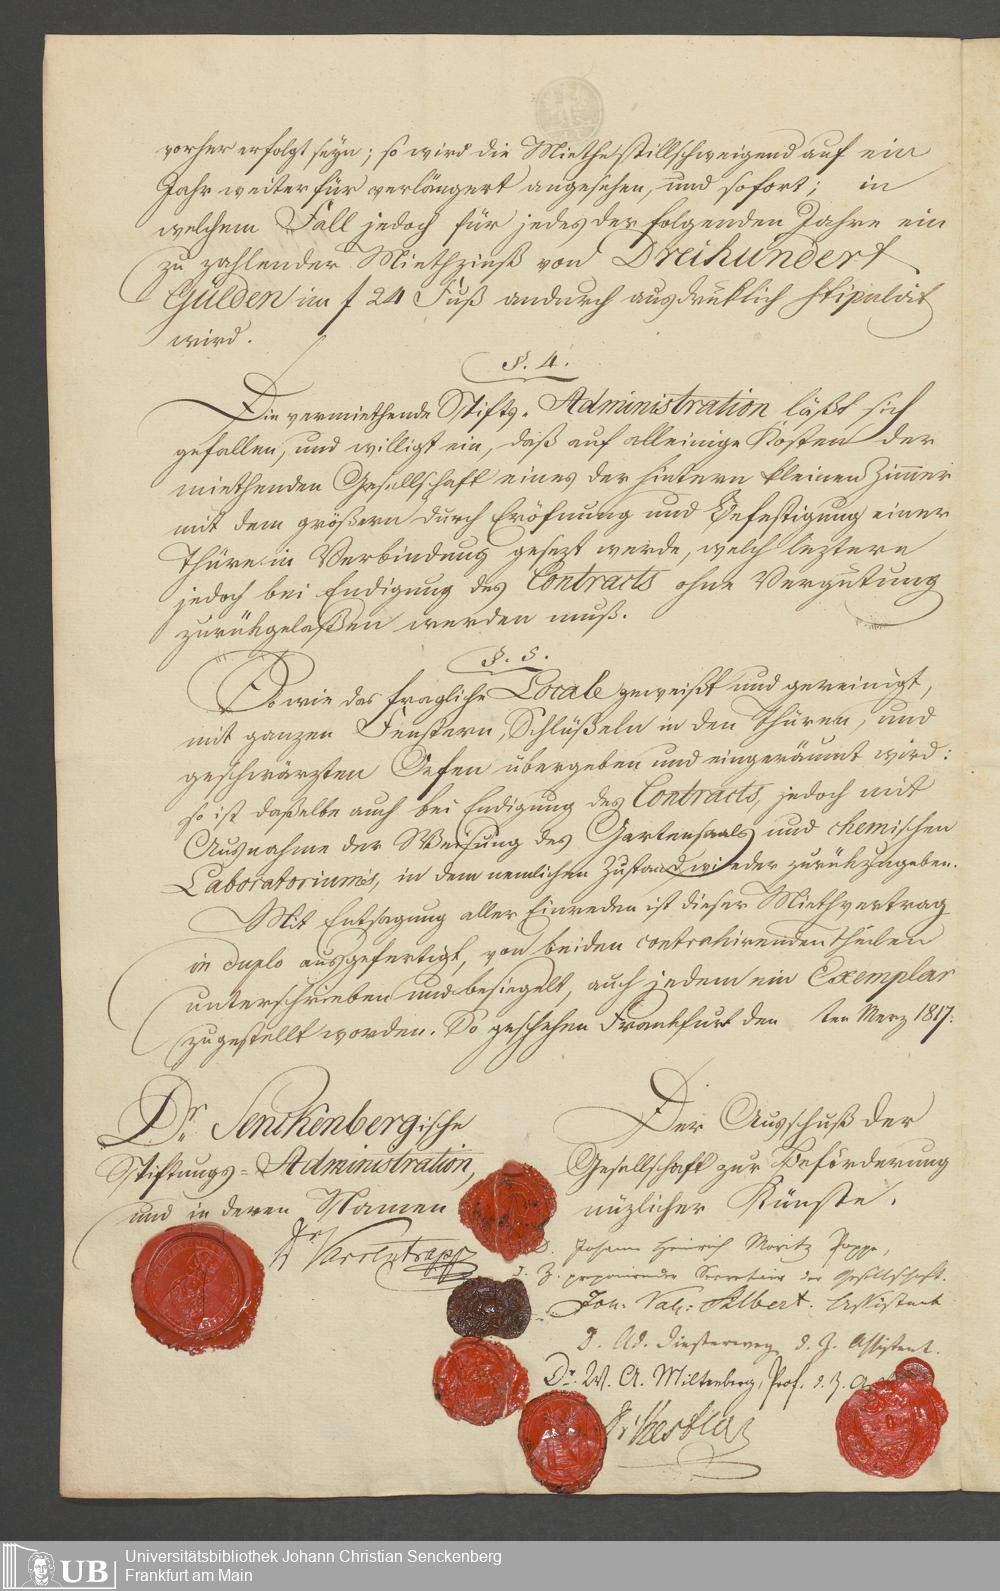 vorher erfolgt seyn; so wird die Miethe stillschweigend auf ein
Jahr weiter für verlängert angesehen, und sofort; in
welchem Fall jedoch für jedes der folgenden Jahre ein
zu zahlender Miethzinß von Dreihundert
Gulden im f 24 Fuß andurch ausdrüklich stipulirt
wird.
§. 4.
Die vermiethende Stifts-Administration läßt sich
gefallen, und willigt ein, daß auf alleinige Kosten der
miethenden Gesellschaft eines der hintern kleinen Zimmer
mit dem größern durch Eröfnung und Befestigung einer
Thüre in Verbindung gesezt werde, welch leztere
jedoch bei Endigung des Contracts ohne Vergütung
zurükgelaßen werden muß.
§. 5.
So wie das fragliche Locale geweißt und gereinigt,
mit ganzen Fenstern, Schlüßeln in den Thüren, und
geschwärzten Oefen übergeben und eingeräumt wird:
so ist daßelbe auch bei Endigung des Contracts, jedoch mit
Ausnahme der Weisung des Gartensaals und chemischen
Laboratoriums, in dem nemlichen Zustand wieder zurükzugeben.
Mit Entsagung aller Einreden ist dieser Miethvertrag
in duplo ausgefertigt, von beiden contrahirenden Theilen
unterschrieben und besiegelt, auch jedem ein Exemplar
zugestellt worden. So geschehen Frankfurt den ten Merz 1817.
Dr. Senckenbergische
Stiftungs-Administration,
und in deren Namen
Dr Varrentrapp
Der Ausschuß der
Gesellschaft zur Beförderung
nüzlicher Künste.
D. Johann Heinrich Moritz Poppe,
d. Z. proponirender Secretair der Gesellschaft.
Joh. Val: Albert. Assistent
D. Ad. Diesterweg d. Z. Assistent.
Dr. W. A. Miltenberg, Prof. d. Z.
Dr Kestler
UB
Universitätsbibliothek Johann Christian Senckenberg
Frankfurt am Main